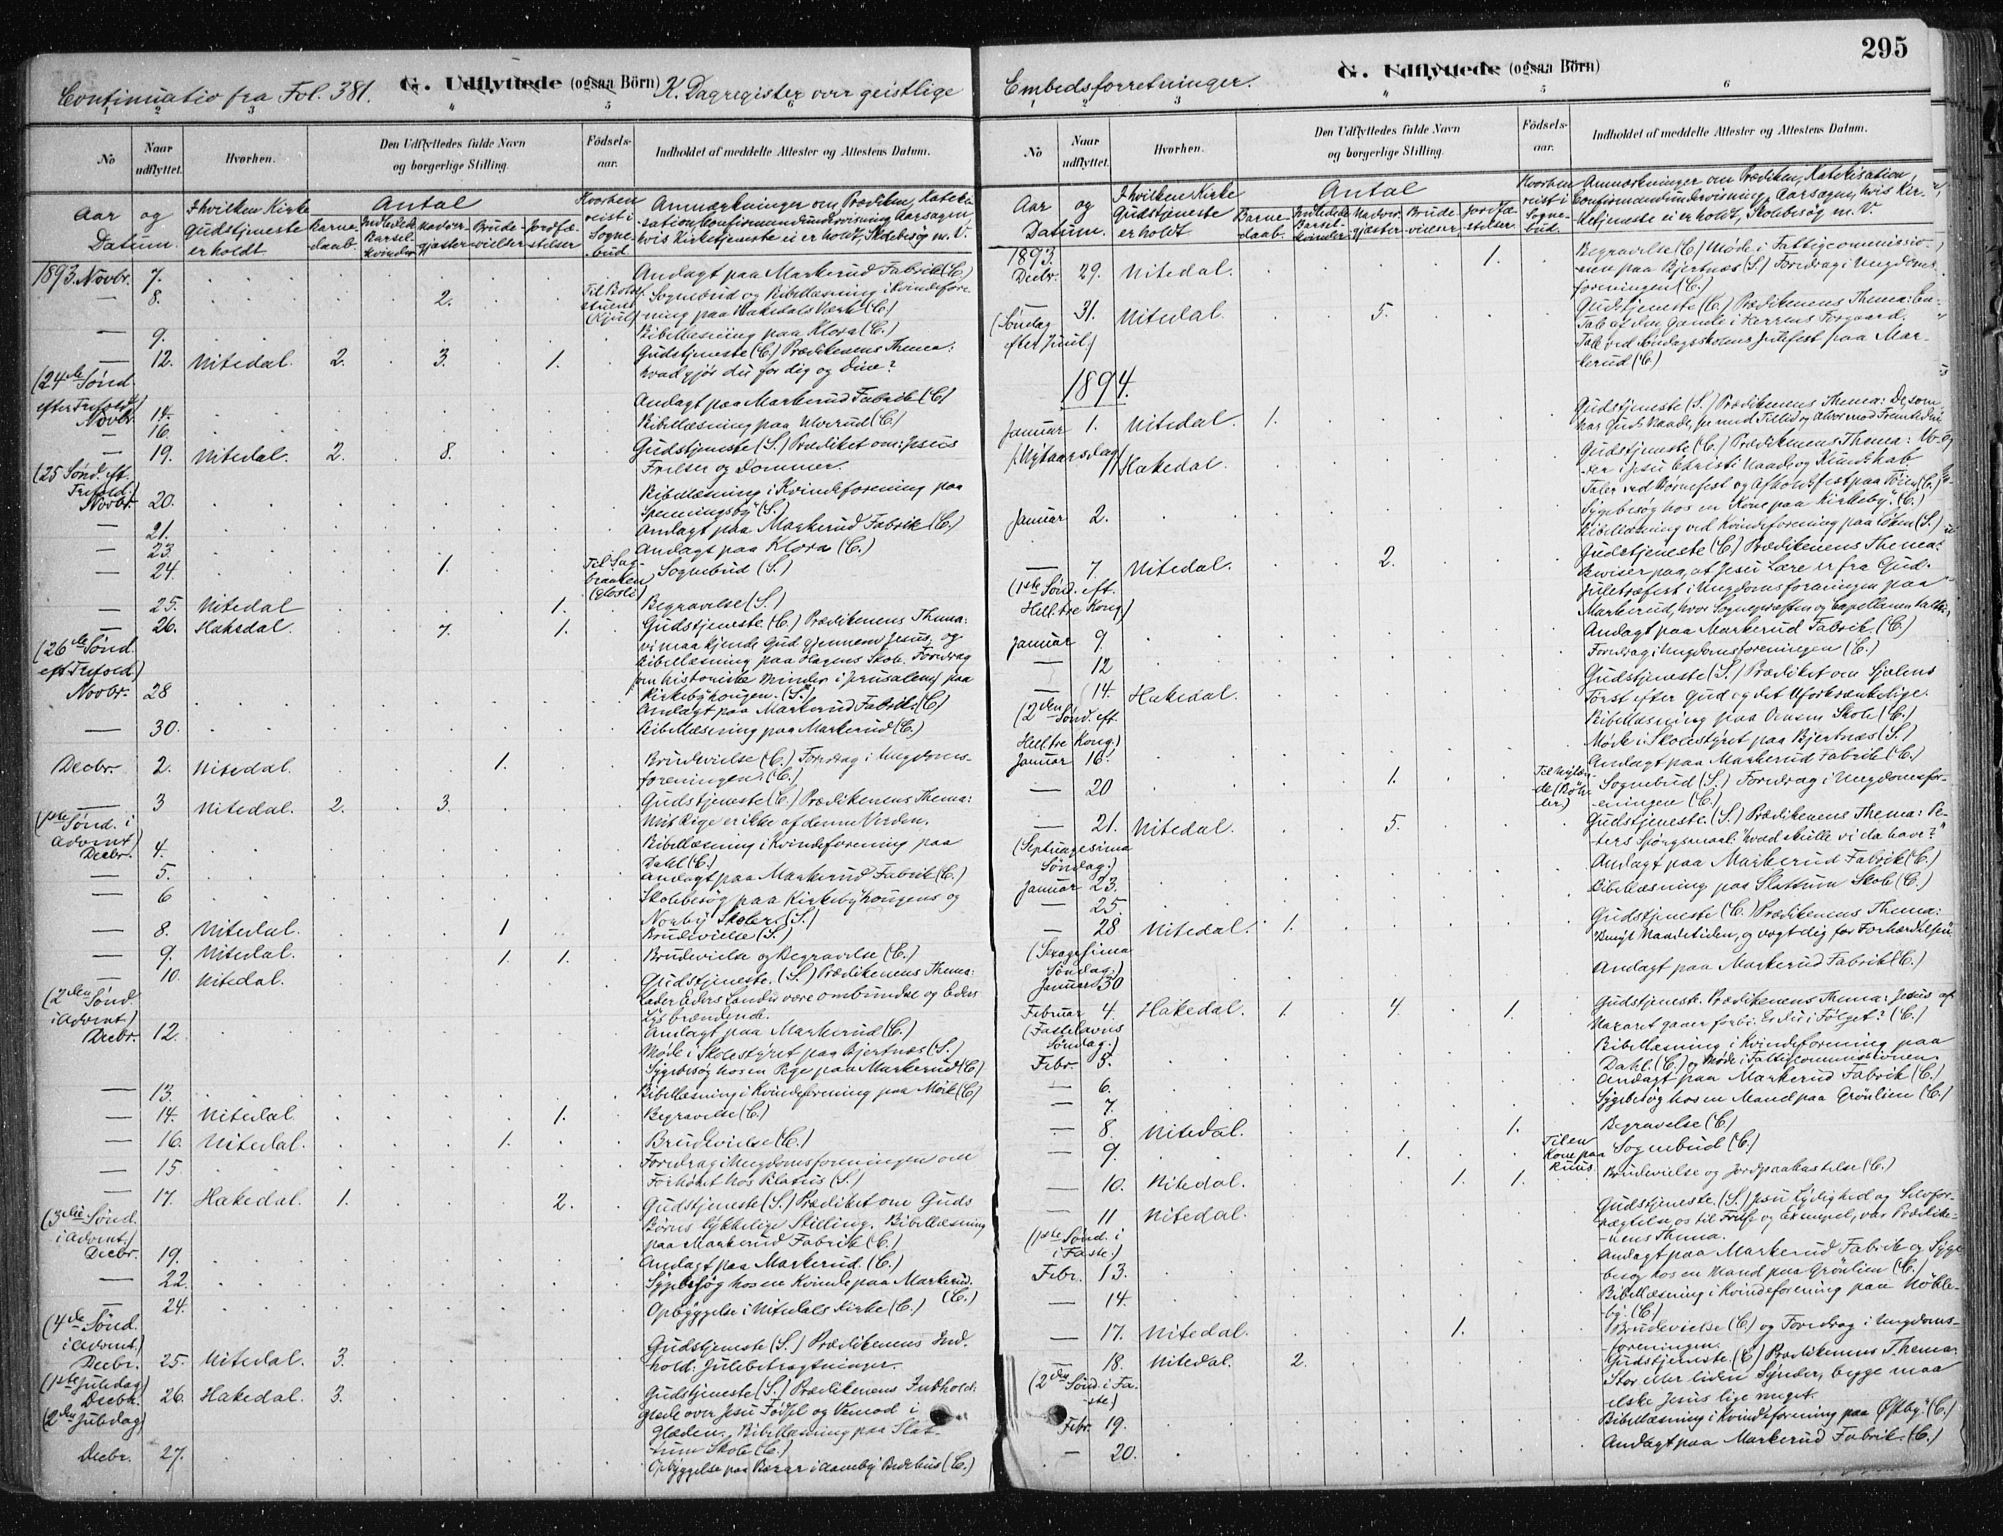 295
Continuatio fra Fol. 381. G. Udflyttede (ogsaa Börn) K. Dagregister over geistlige
1 2 3 4 5 6
No
Naar udflyttet.
Hvorhen.
Den Udflyttedes fulde Navn og borgerlige Stilling.
Födsels-aar.
Indholdet af meddelte Attester og Attestens Datum.
Aar og Datum.
I hvilken Kirke Gudstjeneste er holdt
Antal
Barnedaab.
Indledte Barselkvinder
Nadvergjæster
Brudevielser
Jordfæstelser
Hvorhen reist i Sognebud.
Anmærkninger om Prædiken, Katekisation, Confirmandundervisning, Aarsagen, hvis Kirketjeneste ei er holdt, Skolebesøg m. V.
1893. Novbr. 7. Andagt paa Markerud Fabrik (C.)
— 8. 2. Sognebud og Bibellæsning i Kvindeforening paa Hakedals Værk (C.)
— 9. Bibellæsning paa Klora (C.)
— 12. Nitedal. 2. 3. 1. Gudstjeneste (C.) Prædikenens Thema:
(24de Sønd. efter Trefold.) Hvad gjør du for dig og dine?
Novbr. 14. Andagt paa Markerud Fabrik (C.)
— 16. Bibellæsning paa Ulverud (C.)
— 19. Nitedal. 2. 8. Gudstjeneste (S.) Prædiket om: Jesus
(25 Sønd. eft. Trefold.) Frelser og Dommer.
Novbr. 20. Bibellæsning i Kvindeforening paa
Spenningsby (S.)
— 21. Andagt paa Markerud Fabrik (C.)
— 23 Andagt paa Klora (C.)
— 24. 1. Sognebud (S.)
— 25. Nitedal 1. Begravelse (S.)
— 26. Hakedal. 7. 1. Gudstjeneste (C.) Prædikenens Thema:
(26de Sønd. eft. Trefold.) vi maa kjende Gud gjennem Jesus, og
Bibellæsning paa Hagens Skole. Foredrag
om historiske Minder i Jerusalem paa
Kirkebyhougen. (S.)
Novbr. 28 Andagt paa Markerud Fabrik. (C.)
— 30. Bibellæsning paa Markerud (C.)
Decbr. 2. Nitedal. 1. Brudevielse (C.) Foredrag i Ungdomsforeningen. (C.)
— 3 Nitedal. 2. 3. Gudstjeneste (C.) Prædikenens Thema:
(1ste Sønd. i Advent.) Mit Rige er ikke af denne Verden.
Decbr. 4. Bibellæsning i Kvindeforening paa
Dahl (C.)
— 5. Andagt paa Markerud Fabrik (C.)
— 6 Skolebesøg paa Kirkebyhougens og
Norby Skoler. (S.)
— 8. Nitedal. 1 Brudevielse (S.)
— 9. Nitedal. 1. 1. Brudevielse og Begravelse (C.)
— 10. Nitedal. Gudstjeneste. (S.) Prædikenens Thema:
(2den Sønd. i Advent.) Lader Eders Lænder være ombundne og Eders
Lys brændende.
Decbr. 12. Andagt paa Markerud (C.)
Møde i Skolestyret paa Bjertnæs (S.)
Sygebesøg hos en Pige paa Markerud (C.)
— 13. Bibellæsning i Kvindeforening paa Mørk (C.)
— 14. Nitedal 1. Begravelse (C.)
— 16. Nitedal. 1. Brudevielse (C.)
— 15. Foredrag i Ungdomsforeningen om
Forhøret hos Pilatus (S.)
— 17. Hakedal. 1. 2. Gudstjeneste (S.) Prædiket om Guds
(3die Sønd. i Advent.) Børns lykkelige Stilling. Bibellæsning
paa Markerud Fabrik (C.)
Decbr. 19. Andagt paa Markerud. (C.)
— 22. Sygebesøg hos en Kvinde paa Markerud. (C.)
— 24. Opbyggelse i Nitedals Kirke (C.)
(4de Sønd. i Advent.)
Decbr. 25. Nitedal. 3. Gudstjeneste (S.) Prædikenens Indhold: Julebetragtninger.
(1ste Juledag)
Decbr. 26. Hakedal. 3. Gudstjeneste (S.) Prædikenens Indhold:
(2den Juledag) Glæde over Jesu Fødsel og Vemod i
Glæden. Bibellæsning paa Slattum Skole (C.)
Decbr. 27. Opbyggelse paa Bedehus (C.)
Embedsforretninger. G. Udflyttede (ogsaa Börn)
1 2 3 4 5 6
No
Naar udflyttet.
Hvorhen.
Den Udflyttedes fulde Navn og borgerlige Stilling.
Födsels-aar.
Indholdet af meddelte Attester og Attestens Datum.
Aar og Datum.
I hvilken Kirke Gudstjeneste er holdt
Antal
Barnedaab.
Indledte Barselkvinder
Nadvergjæster
Brudevielser
Jordfæstelser
Hvorhen reist i Sognebud.
Anmærkninger om Prædiken, Katekisation, Confirmandundervisning, Aarsagen, hvis Kirketjeneste ei er holdt, Skolebesøg m. V.
1893. Decbr. 29. Nitedal 1. Begravelse (C.) Møde i Fattigcommissionen paa Bjertnæs (S.) Foredrag i Ungdomsforeningen (C.)
— 31. Nitedal. 5. Gudstjeneste (C.) Prædikenens Thema:
(Søndag efter Juul.) Tale ved Søndagsskolens Julefest paa Markerud (C.)
1894.
Januar 1. Nitedal. 1. Gudstjeneste (S.) Prædikenens Thema: De som
(Nytaarsdag) har Guds Naade, se med Tillid og Alvor mod Fremtiden
Hakedal. Gudstjeneste (C.) Prædikenens Thema:
i Jesu Christi Naade og Kundskab
Januar 2. Sygebesøg hos en Kone paa Kirkeby. (C.)
Bibellæsning ved Kvindeforening paa (S.)
— 7. Nitedal. 2. Gudstjeneste (C.) Prædikenens Thema:
(1ste Sønd. eft. Hell. tre Kong.) Beviser paa, at Jesu Lære er fra Gud.
Juletræfest i Ungdomsforeningen paa
Markerud, hvor Sognepræsten og Capellanen talte.
Januar 9 Andagt paa Markerud Fabrik. (C.)
— 12 Foredrag i Ungdomsforeningen (C.)
— 14. Hakedal Gudstjeneste (S.) Prædiket om Sjælens
(2den Sønd. eft. Hell. tre Kong.) Tørst efter Gud og det Uforkrænkelige.
Bibellæsning paa Skole (C.)
Møde i Skolestyret paa Bjertnæs (S.)
Januar 16. Andagt paa Markerud Fabrik (C.)
— 20 1. Sognebud (S.) Foredrag i Ungdomsforeningen (C.)
— 21. Nitedal. 5. Gudstjeneste. (S.) Prædikenens Thema: Peters Spørgsmaal: "Hvad skulle vi da have?"
(Septuagesima Søndag.)
Januar 23. Andagt paa Markerud Fabrik (C.)
— 25. Bibellæsning paa Slattum Skole (C.)
— 28 Nitedal. 1. Gudstjeneste (C.) Prædikenens Thema:
(Sexagesima Søndag.) Benyt Naadetiden, og vogt dig for Forhærdelsen
Januar 30 Andagt paa Markerud Fabrik (C.)
Februar 4. Hakedal 1. 4. 1. Gudstjeneste. Prædikenens Thema: Jesus af
(Fastelavns Søndag.) Nazaret gaaer forbi. Er du i Følget? (C.)
Febr. 5. Bibellæsning i Kvindeforening paa
Dahl. (C.) og Møde i Fattigcommissionen
— 6. Andagt paa Markerud Fabrik (C.)
— 7. Sygebesøg hos en Mand paa Grönlien (C.)
— 8. Nitedal. 1. Begravelse (C.)
— 9. 1. Til en Kone paa Ruus. Sognebud (C.)
— 10. Nitedal. 1. 1. Brudevielse og Jordpaakastelse (C.)
— 11 Nitedal. Gudstjeneste. (S.) Jesu Lydighed og Selvfornægtelse, os til Frelse og Exempel, var Prædikenens Thema.
(1ste Sønd. i Faste.)
Febr. 13. Andagt paa Markerud Fabrik og Sygebesøg hos en Mand paa Grönlien (C.)
— 14. Bibellæsning i Kvindeforening paa Nökleby. (C.)
— 17. Nitedal 1. Brudevielse (C.) og Foredrag i Ungdomsforeningen.
— 18. Nitedal. 2. Gudstjeneste (C.) Prædikenens Thema:
(2den Sønd. i Faste) Stor eller liden Synder, begge maa
elske Jesus lige meget.
Febr. 19. Bibellæsning i Kvindeforening paa Østby. (C.)
— 20. Andagt paa Markerud Fabrik. (C.)